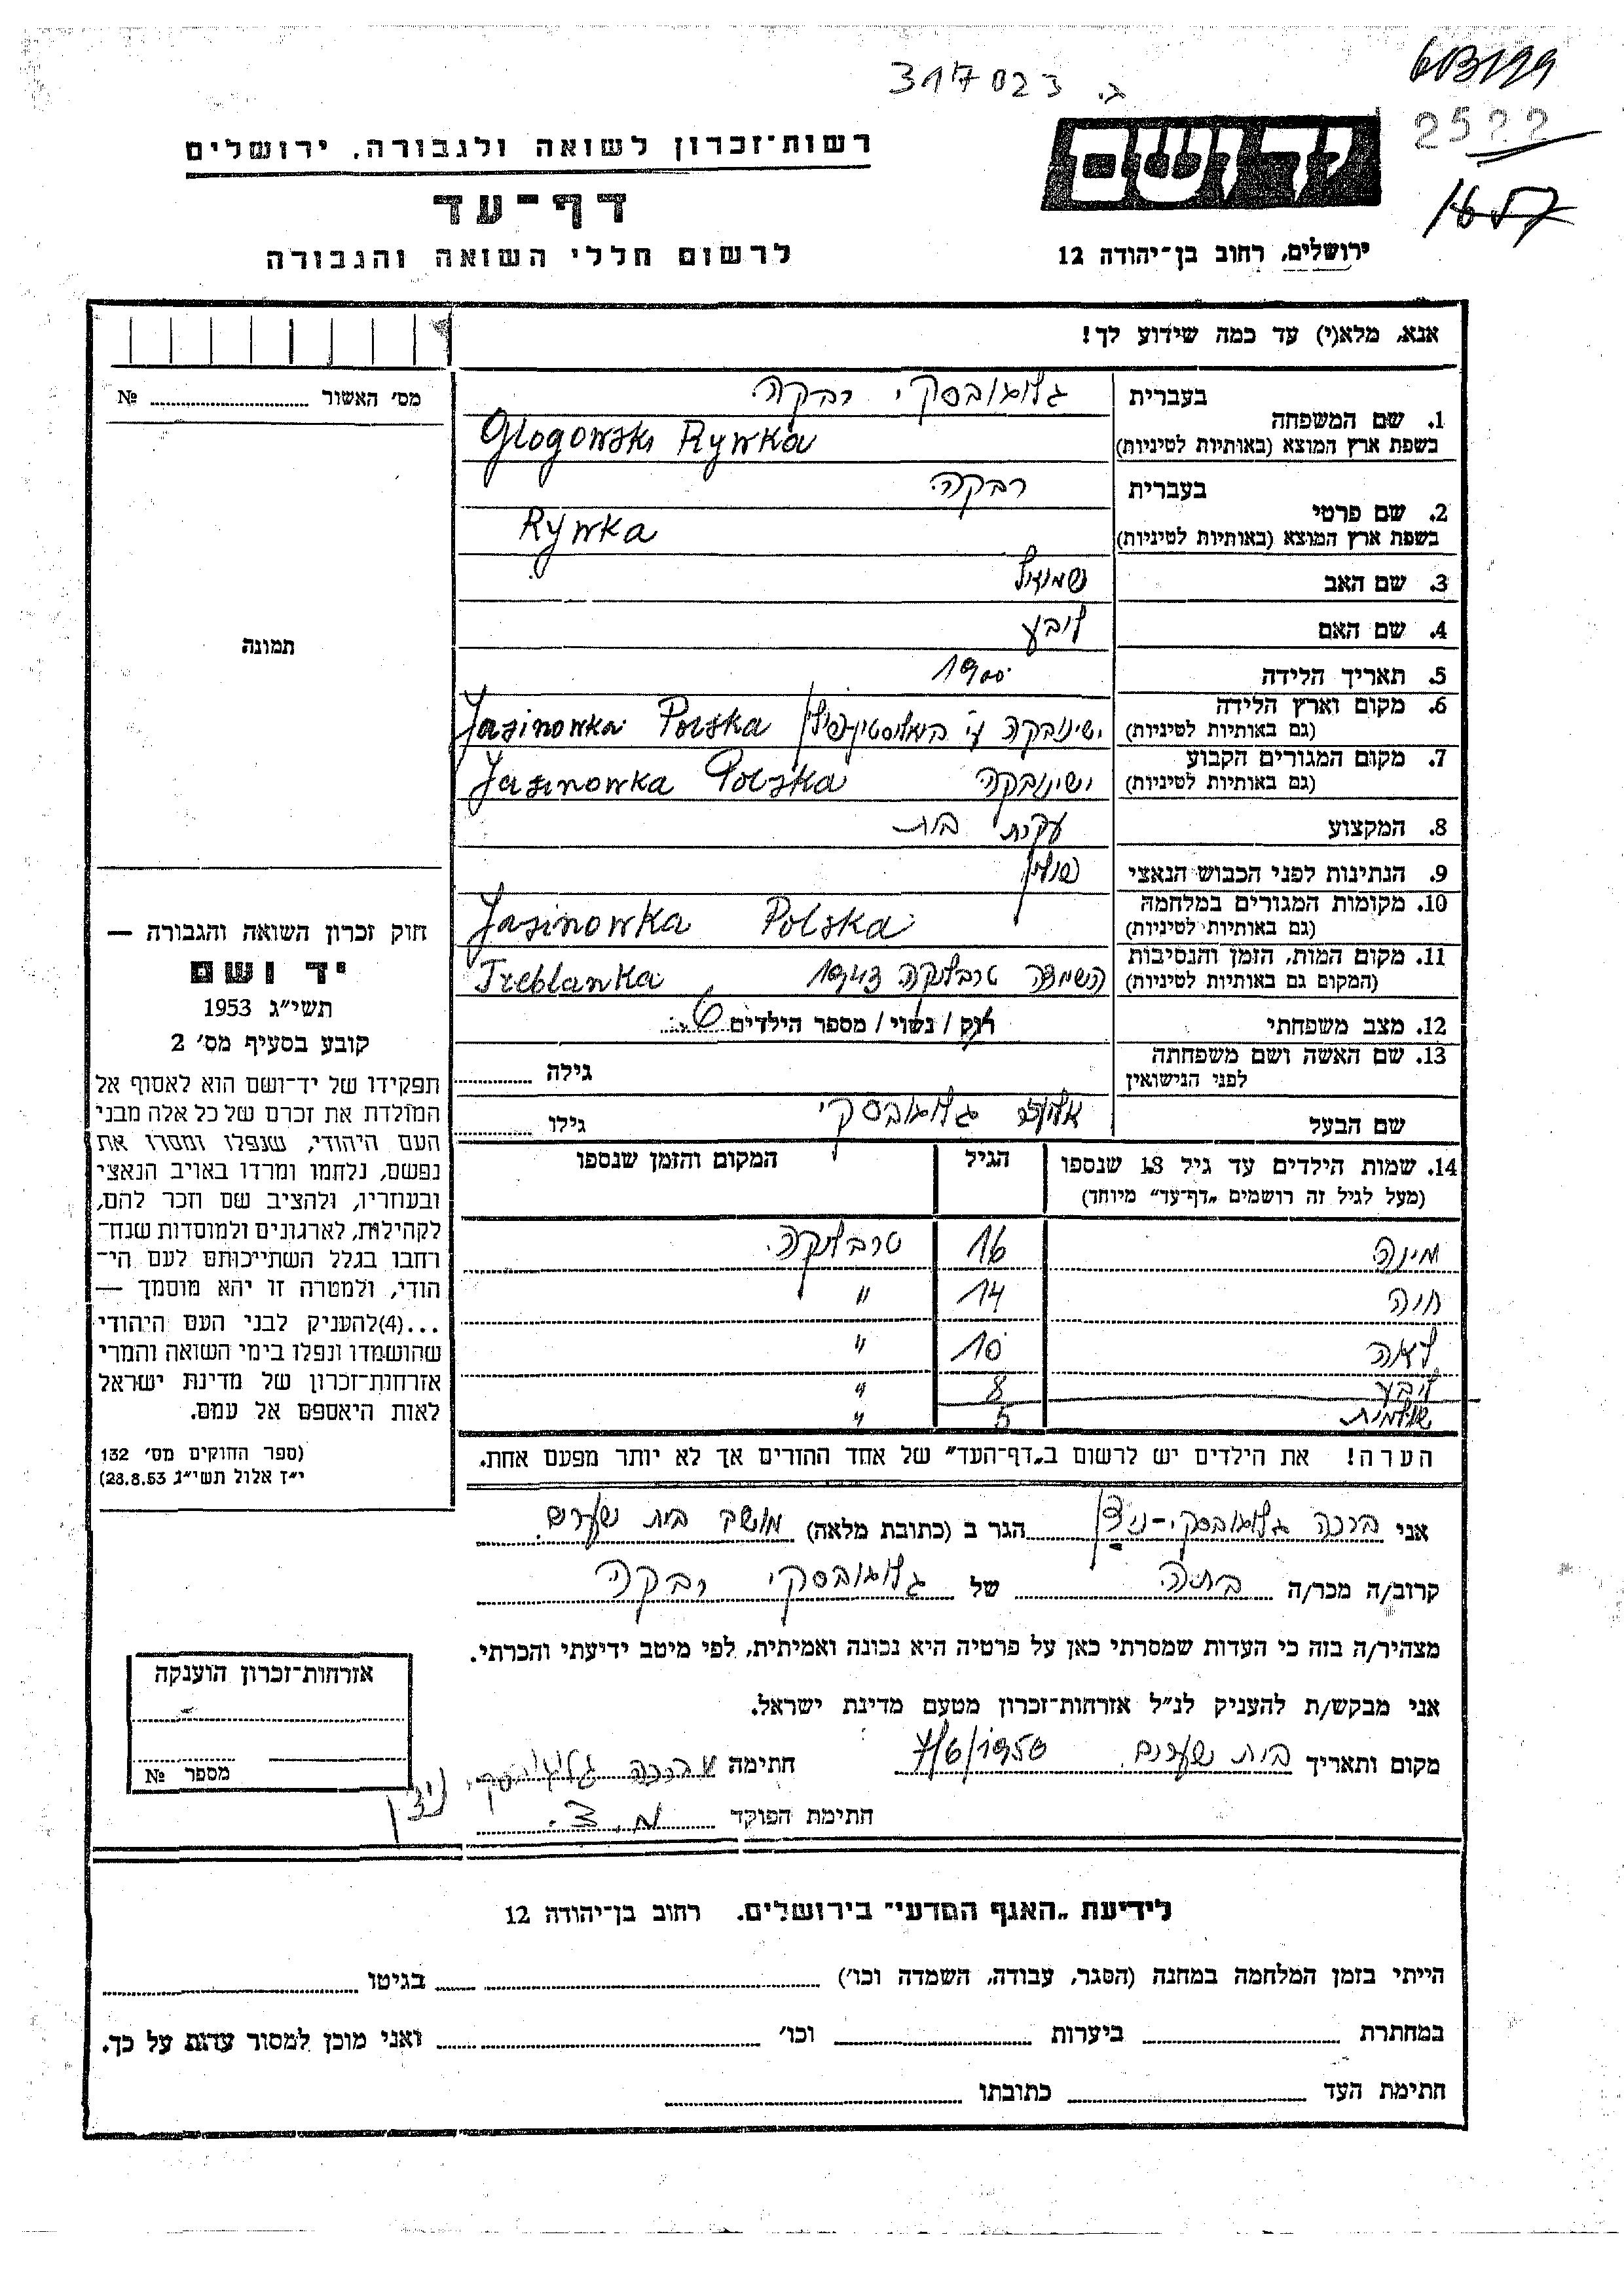 317023 ג.
2522
1657
רשות־זכרון לשואה ולגבורה, ירושלים
דף־עד
לרשום חללי השואה והגבורה
יד ושם
ירושלים, רחוב בן־יהודה 12
אנא, מלא(י) עד כמה שידוע לך!
מס׳ האשור № 
תמונה
חוק זכרון השואה והגבורה —
יד ושם
תשי״ג 1953
קובע בסעיף מס׳ 2
תפקידו של יד־ושם הוא לאסוף אל
המולדת את זכרם של כל אלה מבני
העם היהודי, שנפלו ומסרו את
נפשם, נלחמו ומרדו באויב הנאצי
ובעוזריו, ולהציב שם וזכר להם,
לקהילות, לארגונים ולמוסדות שנח־
רחבו בגלל השתייכותם לעם הי־
הודי, ולמטרה זו יהא מוסמך —
...(4)להעניק לבני העם היהודי
שהושמדו ונפלו בימי השואה והמרי
אזרחות־זכרון של מדינת ישראל
לאות היאספם אל עמם.
(ספר החוקים מס׳ 132
י״ז אלול תשי״ג 28.8.53)
1. שם המשפחה בעברית גלוגובסקי רבקה
בשפת ארץ המוצא (באותיות לטיניות) Glogowski Rywka
2. שם פרטי בעברית רבקה
בשפת ארץ המוצא (באותיות לטיניות) Rywka
3. שם האב שמואל
4. שם האם ליבע
5. תאריך הלידה 1900
6. מקום וארץ הלידה (גם באותיות לטיניות) ישינובקה ע״י ביאליסטוק־פולין Jasinowka Polska
7. מקום המגורים הקבוע (גם באותיות לטיניות) ישינובקה Jasinowka Polska
8. המקצוע עקרת בית
9. הנתינות לפני הכבוש הנאצי פולין
10. מקומות המגורים במלחמה (גם באותיות לטיניות) Jasinowka Polska
11. מקום המות, הזמן והנסיבות (המקום גם באותיות לטיניות) הושמדה טרבלינקה 1943 Treblawka
12. מצב משפחתי רוק / נשוי / מספר הילדים 6
13. שם האשה ושם משפחתה לפני הנישואין גילה
שם הבעל גלוגובסקי גילו
14. שמות הילדים עד גיל 18 שנספו (מעל לגיל זה רושמים „דף־עד״ מיוחד) הגיל המקום והזמן שנספו
מינה 16 טרבלינקה
חיה 14 "
לאה 10 "
ליבע 8 "
שולמית 5 "
הערה! את הילדים יש לרשום ב„דף־העד״ של אחד ההורים אך לא יותר מפעם אחת.
אני ברכה גלוגובסקי־ניצן הגר ב (כתובת מלאה) מושב בית שערים
קרוב/ה מכר/ה בתה של גלוגובסקי רבקה
מצהיר/ה בזה כי העדות שמסרתי כאן על פרטיה היא נכונה ואמיתית, לפי מיטב ידיעתי והכרתי.
אני מבקש/ת להעניק לנ״ל אזרחות־זכרון מטעם מדינת ישראל.
מקום ותאריך בית שערים 7/6/1956 חתימה ברכה גלוגובסקי ניצן
חתימת הפוקד מ. צ.
אזרחות־זכרון הוענקה
מספר №
לידיעת „האגף המדעי״ בירושלים, רחוב בן־יהודה 12
הייתי בזמן המלחמה במחנה (הסגר, עבודה, השמדה וכו׳) בגיטו
במחתרת ביערות וכו׳ ואני מוכן למסור עדות על כך.
חתימת העד כתובתו